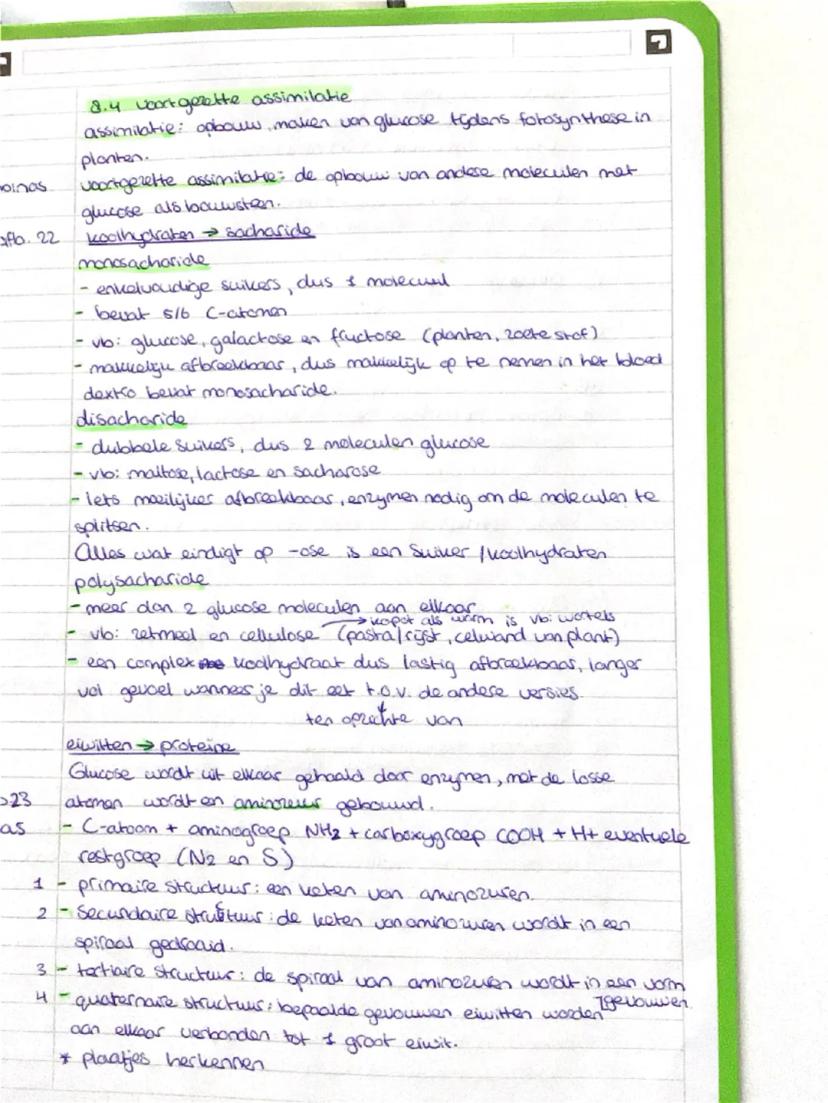 8.4 voortgezette assimilatie
assimilatie: opbouw, maken van glucose tijdens fotosynthese in
planten.
voortgezette assimilatie: de opbouw van andere moleculen met
glucose als bouwsteen.
afb. 22 koolhydraten → sacharide
monosacharide
- enkelvoudige suikers, dus 1 molecuul
- bevat 5/6 C-atomen
- vb: glucose, galactose en fructose (planten, zoete stof)
- makkelijk afbreekbaar, dus makkelijk op te nemen in het bloed
dextro bevat monosacharide.
disacharide
- dubbele suikers, dus 2 moleculen glucose
- vb: maltose, lactose en sacharose
- iets moeilijker afbreekbaar, enzymen nodig om de moleculen te
splitsen.
Alles wat eindigt op -ose is een suiker / koolhydraten
polysacharide
- meer dan 2 glucose moleculen aan elkaar
→ kapot als warm is vb: wortels
- vb: zetmeel en cellulose (pasta/rijst, celwand van plant)
- een complex koolhydraat dus lastig afbreekbaar, langer
vol gevoel wanneer je dit eet t.o.v. de andere versies.
ten opzichte van
eiwitten → proteïne
Glucose wordt uit elkaar gehaald door enzymen, met de losse
23 atomen worden aminozuur gebouwd.
as - C-atoon + aminogroep NH2 + carboxygroep COOH + H+ eventuele
restgroep (N2 en S)
1 - primaire structuur: een keten van aminozuren.
2 - Secundaire structuur: de keten van aminozuren wordt in een
spiraal gedraaid.
3 - tertiaire structuur: de spiraal van aminozuren wordt in een vorm
gevouwen
4 - quaternaire structuur: bepaalde gevouwen eiwitten worden
aan elkaar verbonden tot 1 groot eiwit.
* plaatjes herkennen